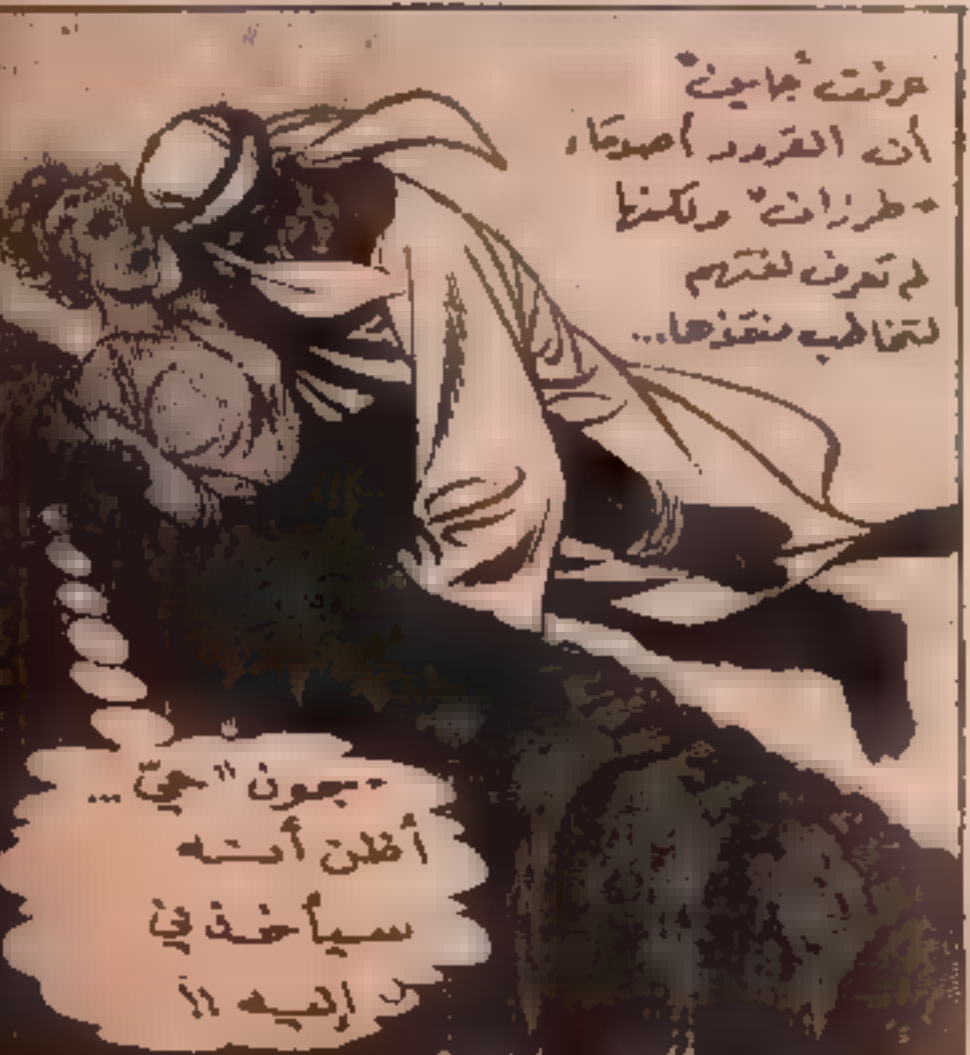 عرفت "جاين"
أن القرود أصدقاء
"طرزان" ولكنها
لم تعرف لغتهم
لتخاطب منقذها...
"جون" حيّ ...
أظن أنه
سيأخذني
إليه !!